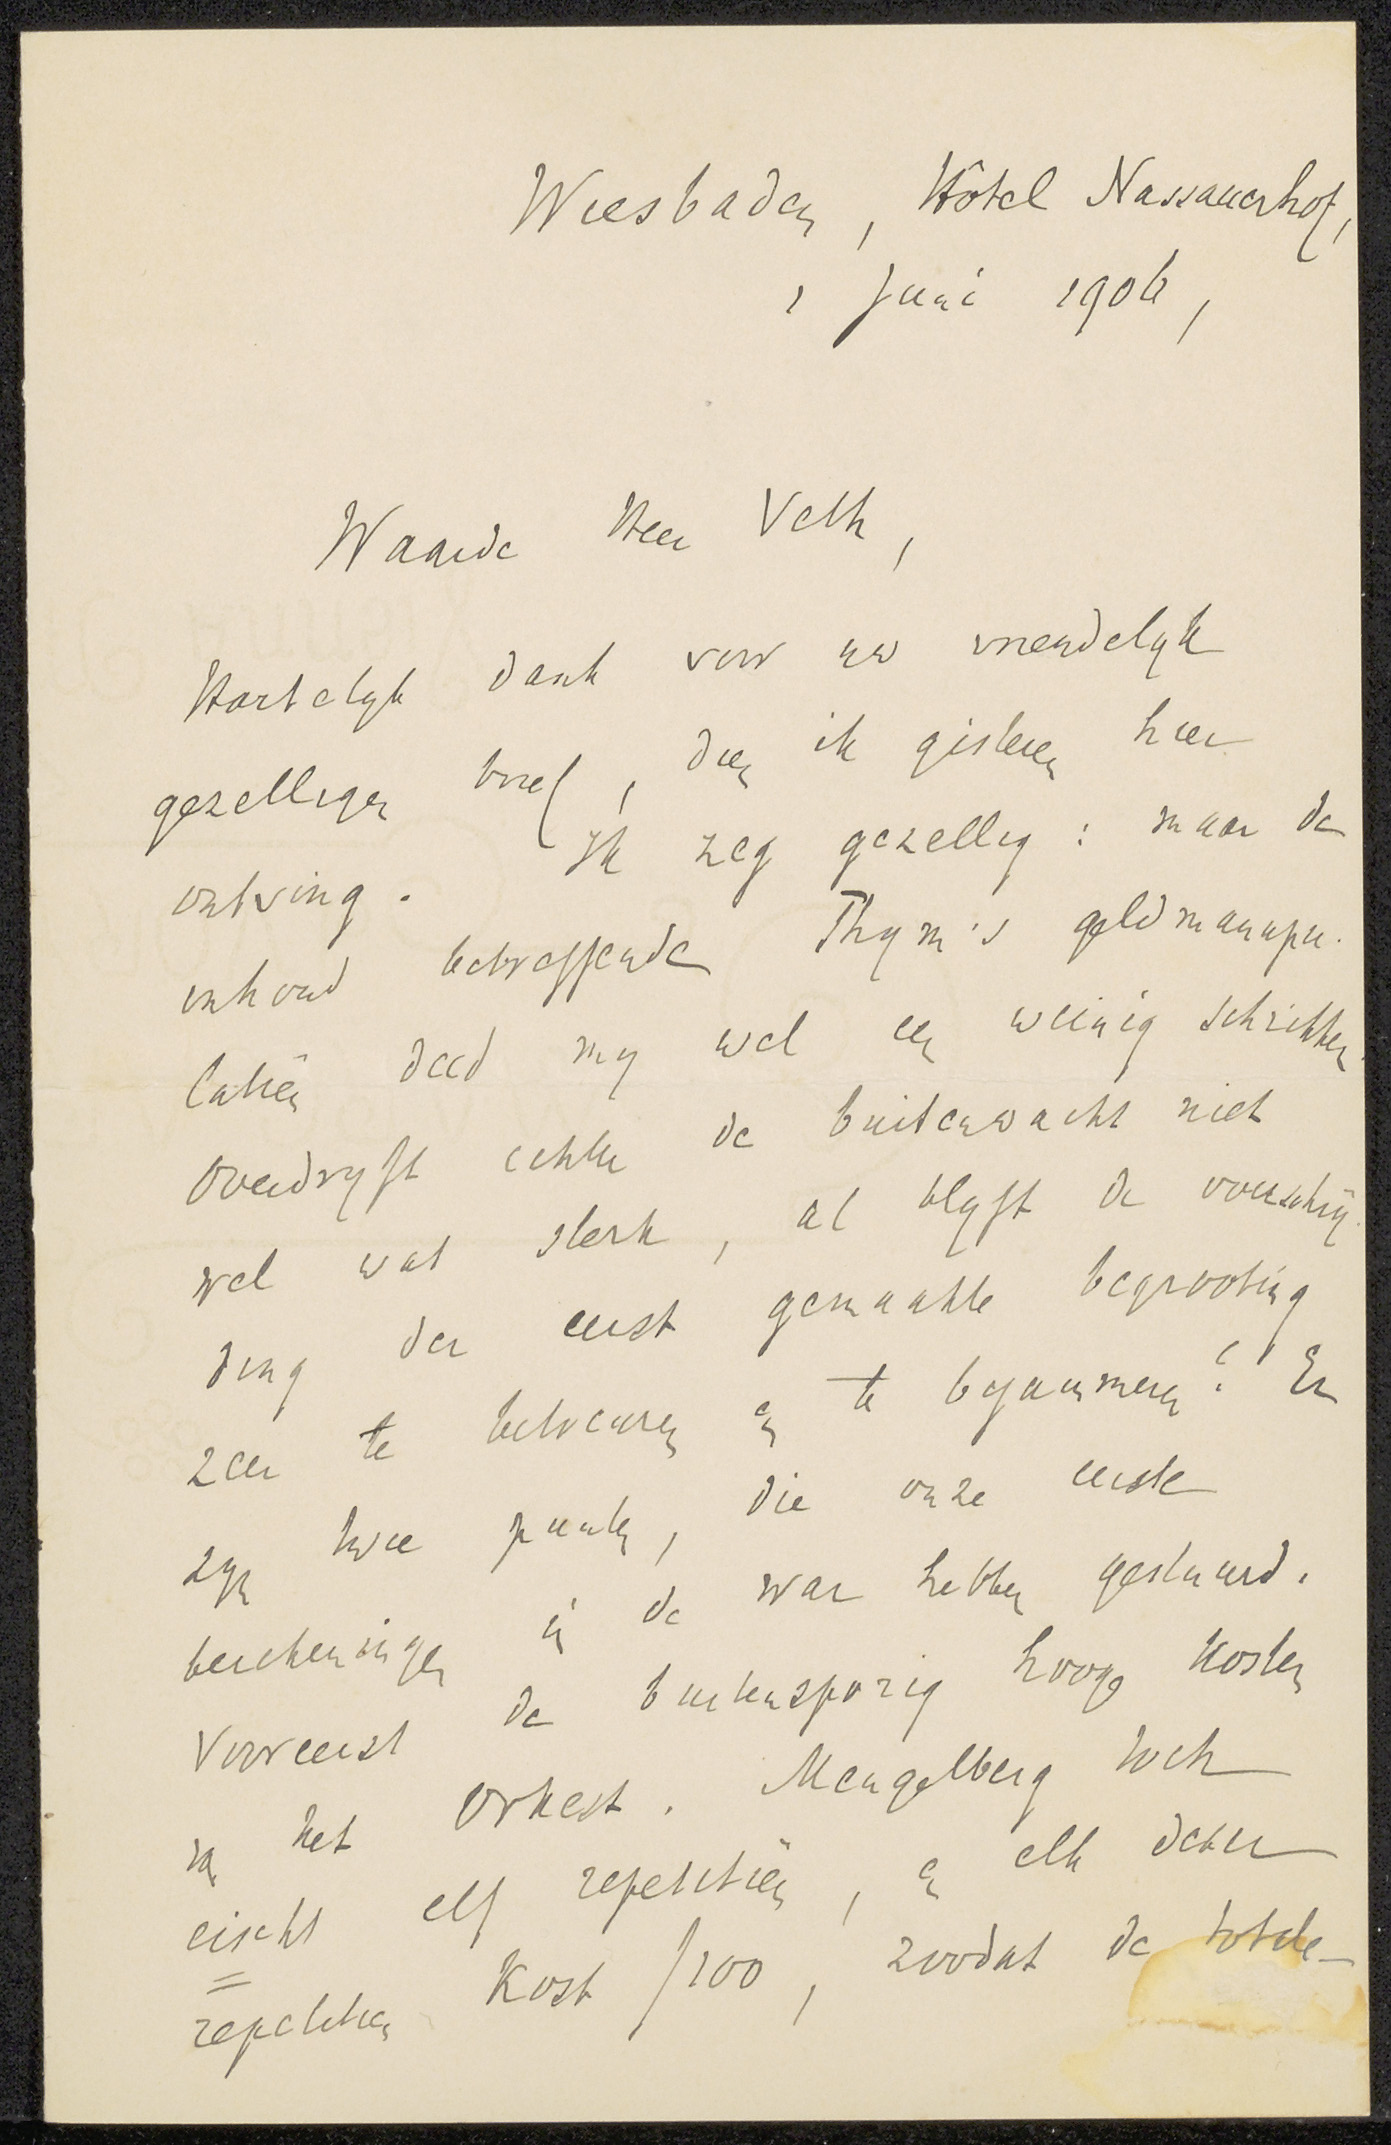 Wiesbaden, Hôtel Nassauerhof,
1 Juni 1906,
Waarde Heer Veth,
Hartelyk dank voor uw vriendelyk
gezelligen brief, dien ik gisteren hier
ontving. Ik zeg gezellig: maar de
inhoud betreffende Thym's geldmanipu-
latiën deed my wel een weinig schrikken.
Overdryft echter de buitenwacht niet
wel wat sterk, al blyft de overschry-
ding der eerst gemaakte begrooting
zeer te betreuren en te bejammeren? Er
zyn twee punten, die onze eerste
berekeningen in de war hebben gestuurd.
Vooreerst de buitensporig hooge kosten
van het orkest. Mengelberg toch
eischt elf repetitiën, en elk dezer
repetitien kost ƒ100, zoodat de totale